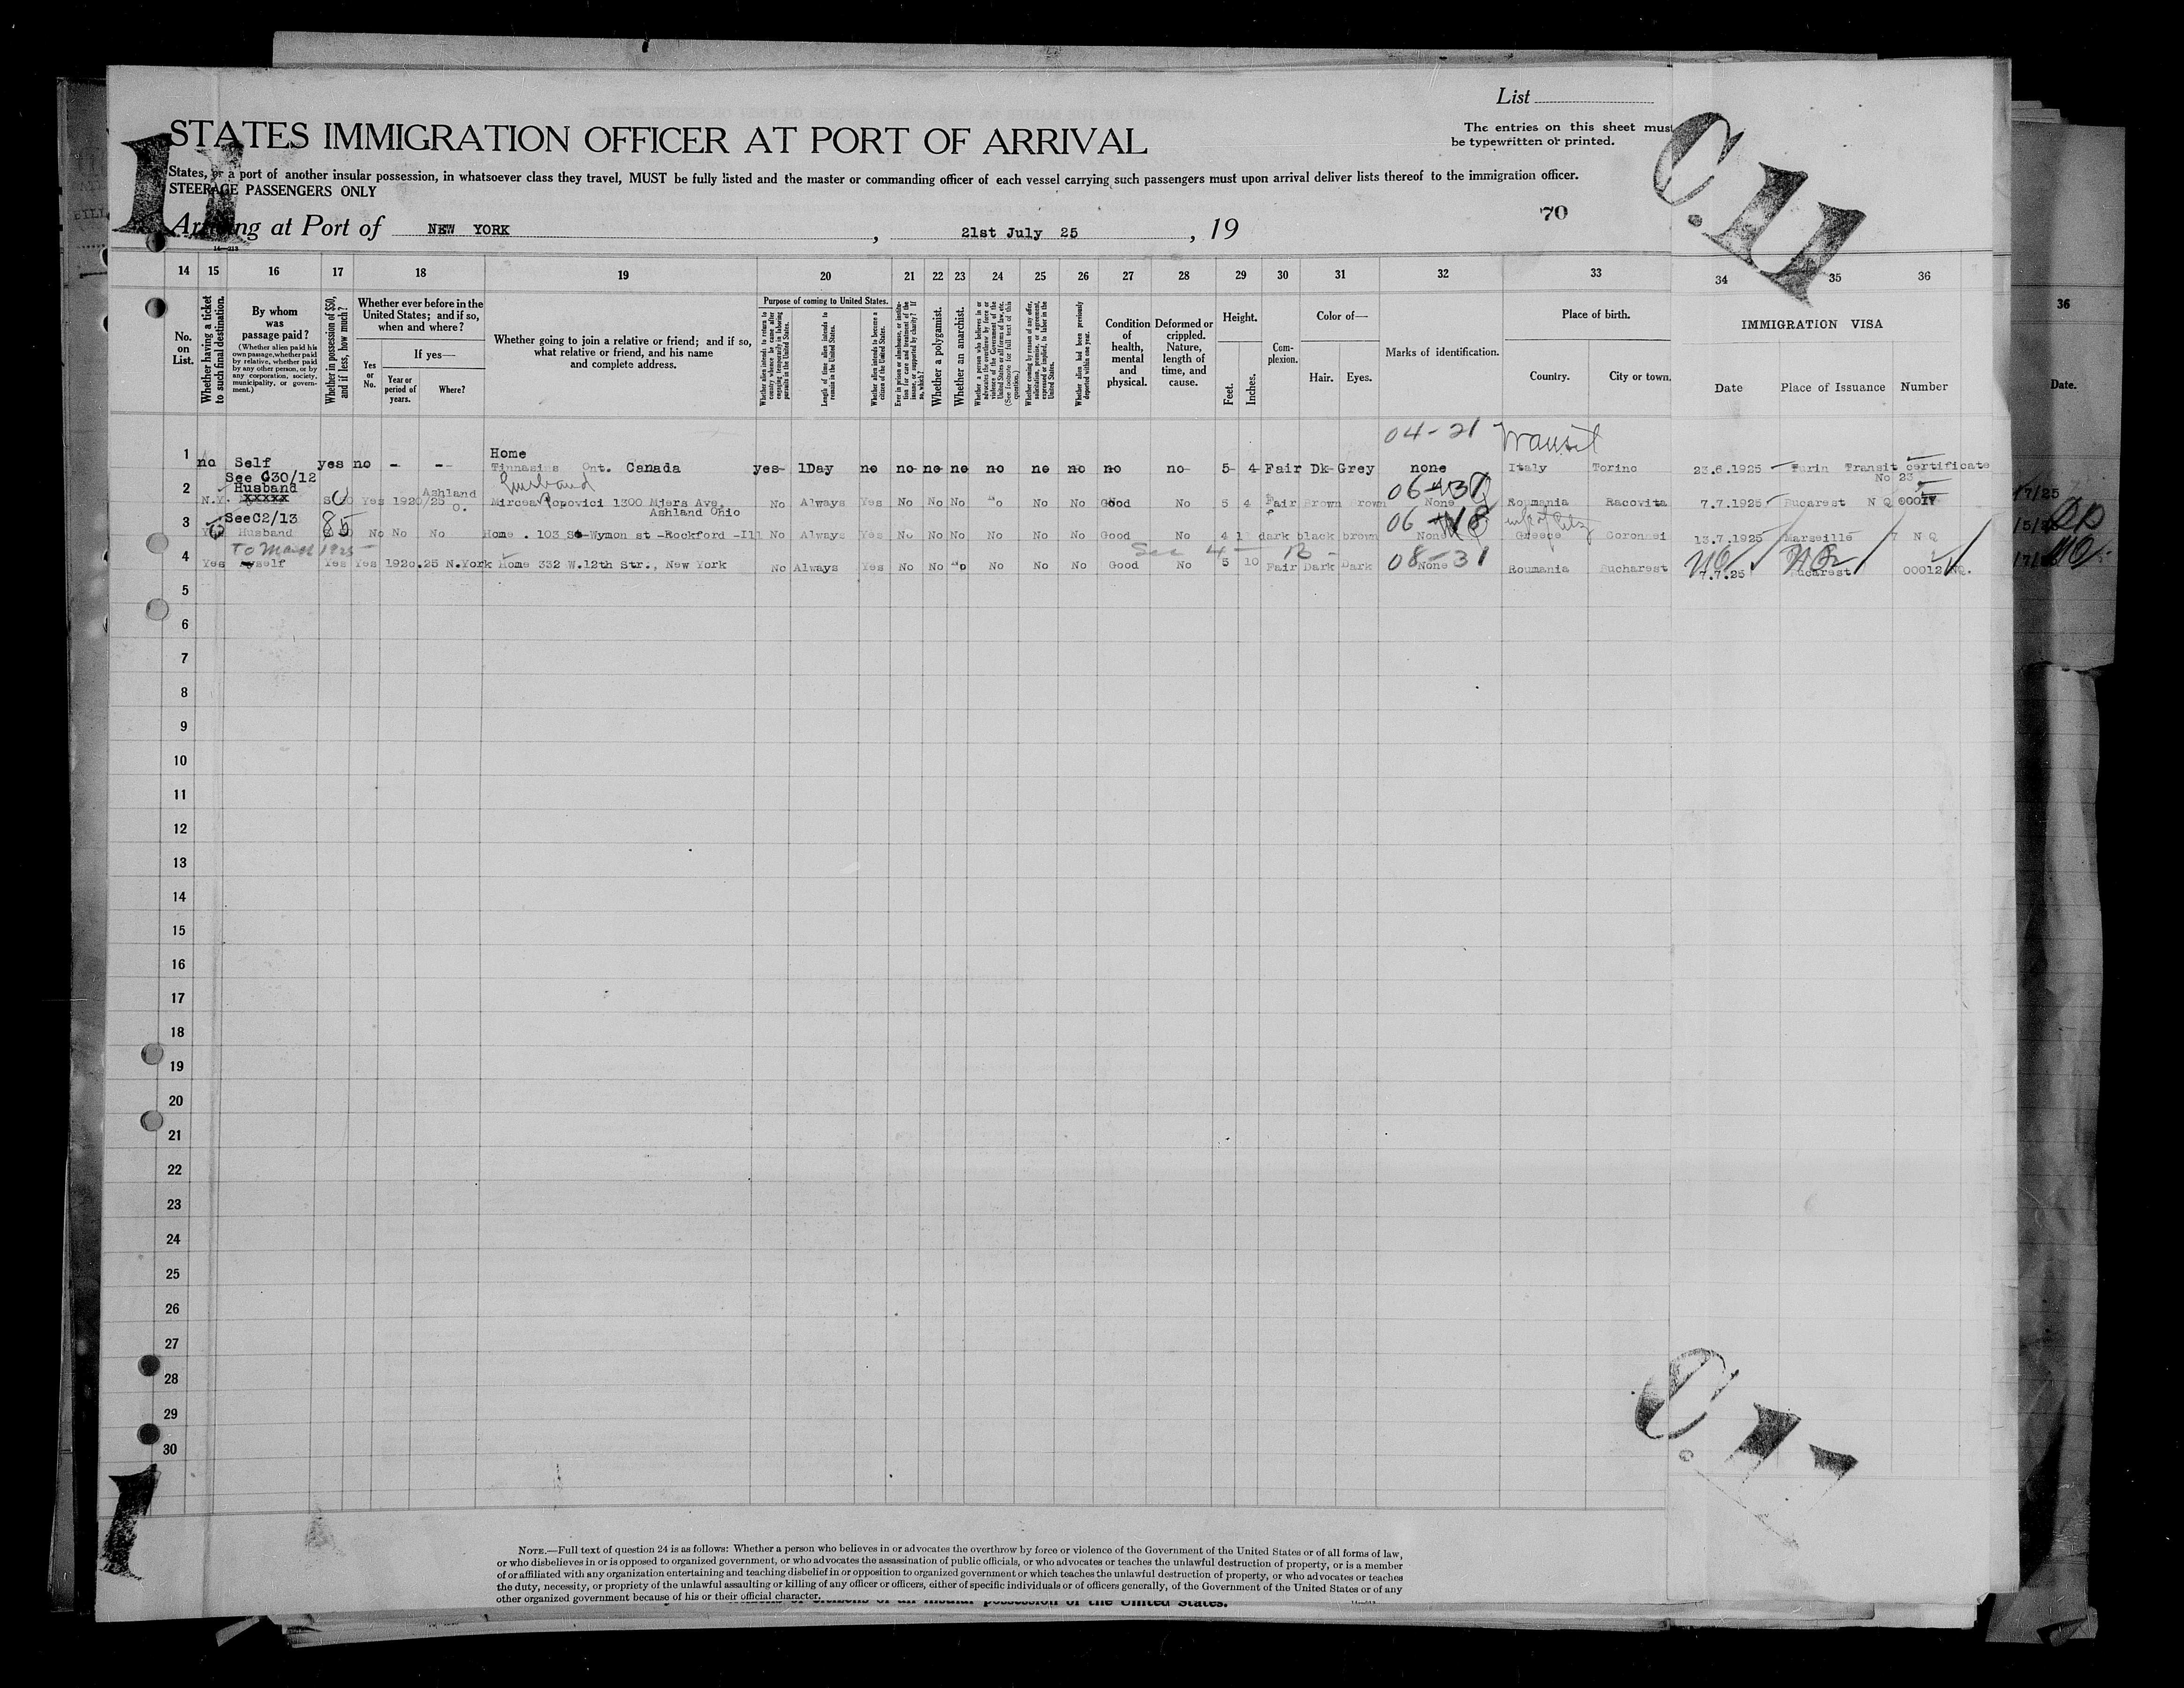 List
STATES IMMIGRATION OFFICER AT PORT OF ARRIVAL
The entries on this sheet must
be typewritten or printed.
States, or a port of another insular possession, in whatsoever class they travel, MUST be fully listed and the master or commanding officer of each vessel carrying such passengers must upon arrival deliver lists thereof to the immigration officer.
STEERAGE PASSENGERS ONLY
C.11
11
70
Arriving at Port of NEW YORK, 21st July 25, 19
14—213
14 15 16 17 18 19 20 21 22 23 24 25 26 27 28 29 30 31 32 33 34 35 36
No. on List.
Whether having a ticket to such final destination.
By whom was passage paid?
(Whether alien paid his own passage, whether paid by relative, whether paid by any other person, or by any corporation, society, municipality, or government.)
Whether in possession of $50, and if less, how much?
Whether ever before in the United States; and if so, when and where?
Yes or No.
If yes—
Year or period of years.
Where?
Whether going to join a relative or friend; and if so, what relative or friend, and his name and complete address.
Purpose of coming to United States.
Whether alien intends to return to country whence he came after engaging temporarily in laboring pursuits in the United States.
Length of time alien intends to remain in the United States.
Whether alien intends to become a citizen of the United States.
Ever in prison or almshouse, or institution for care and treatment of the insane, or supported by charity? If so, which?
Whether a polygamist.
Whether an anarchist.
Whether a person who believes in or advocates the overthrow by force or violence of the Government of the United States or all forms of law, etc. (See footnote for full text of this question.)
Whether coming by reason of any offer, solicitation, promise, or agreement, expressed or implied, to labor in the United States.
Whether alien had been previously deported within one year.
Condition of health, mental and physical.
Deformed or crippled. Nature, length of time, and cause.
Height.
Feet.
Inches.
Complexion.
Color of—
Hair.
Eyes.
Marks of identification.
Place of birth.
Country.
City or town.
IMMIGRATION VISA
Date
Place of Issuance
Number
36
Date.
04-21 Transit
1 no Self yes no - -- Home
Ont. Canada yes- 1Day no no no no no no no no no 5 4 Fair Dk Grey none Italy Torino 23.6.1925 Turin Transit certificate
No 23
See C30/12
2 N.Y. Husband xxxxx Yes 1920/25 Ashland O. husband
Mircea Popovici 1300 Miers Ave. No Always Yes No No No No No No Good No 5 4 Fair Brown Brown None Roumania Racovita 7.7.1925 Bucarest N Q
Ashland Ohio
7/25
See C2/13
3 Yes Husband 85 No No No Home . 103 So Wymon st -Rockford -Ill No Always Yes No No No No No No Good No 4 11 dark black brown None Greece 13.7.1925 Marseille 7 N Q
To March 1925
4 Yes Myself Yes Yes 1920.25 N.York Home 332 W.12th Str., New York No Always Yes No No No No No No Good No 5 10 Fair Dark Dark 08-31 None Roumania Bucharest 7.7.25 Bucarest 00012 NQ.
5
6
7
8
9
10
11
12
13
14
15
16
17
18
19
20
21
22
23
24
25
26
27
28
29
30
NOTE.—Full text of question 24 is as follows: Whether a person who believes in or advocates the overthrow by force or violence of the Government of the United States or of all forms of law,
or who disbelieves in or is opposed to organized government, or who advocates the assassination of public officials, or who advocates or teaches the unlawful destruction of property, or is a member
of or affiliated with any organization entertaining and teaching disbelief in or opposition to organized government or which teaches the unlawful destruction of property, or who advocates or teaches
the duty, necessity, or propriety of the unlawful assaulting or killing of any officer or officers, either of specific individuals or of officers generally, of the Government of the United States or of any
other organized government because of his or their official character.